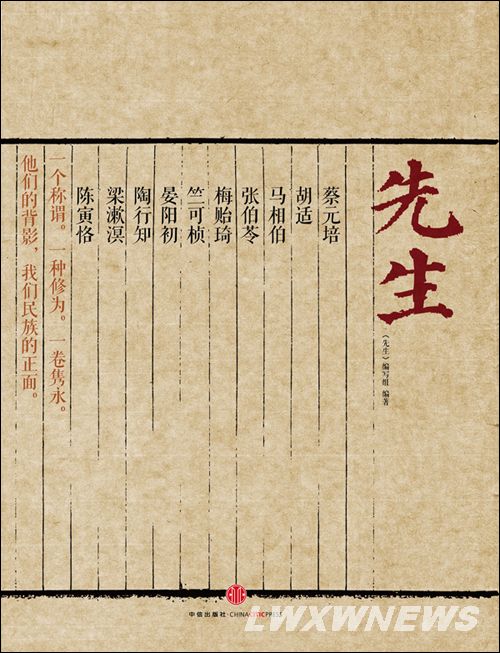 先生
《先生》编写组 编著
蔡元培
胡适
马相伯
张伯苓
梅贻琦
竺可桢
晏阳初
陶行知
梁漱溟
陈寅恪
一个称谓。一种修为。一卷隽永。
他们的背影，我们民族的正面。
中信出版社·CHINACITICPRESS
LWXWNEWS